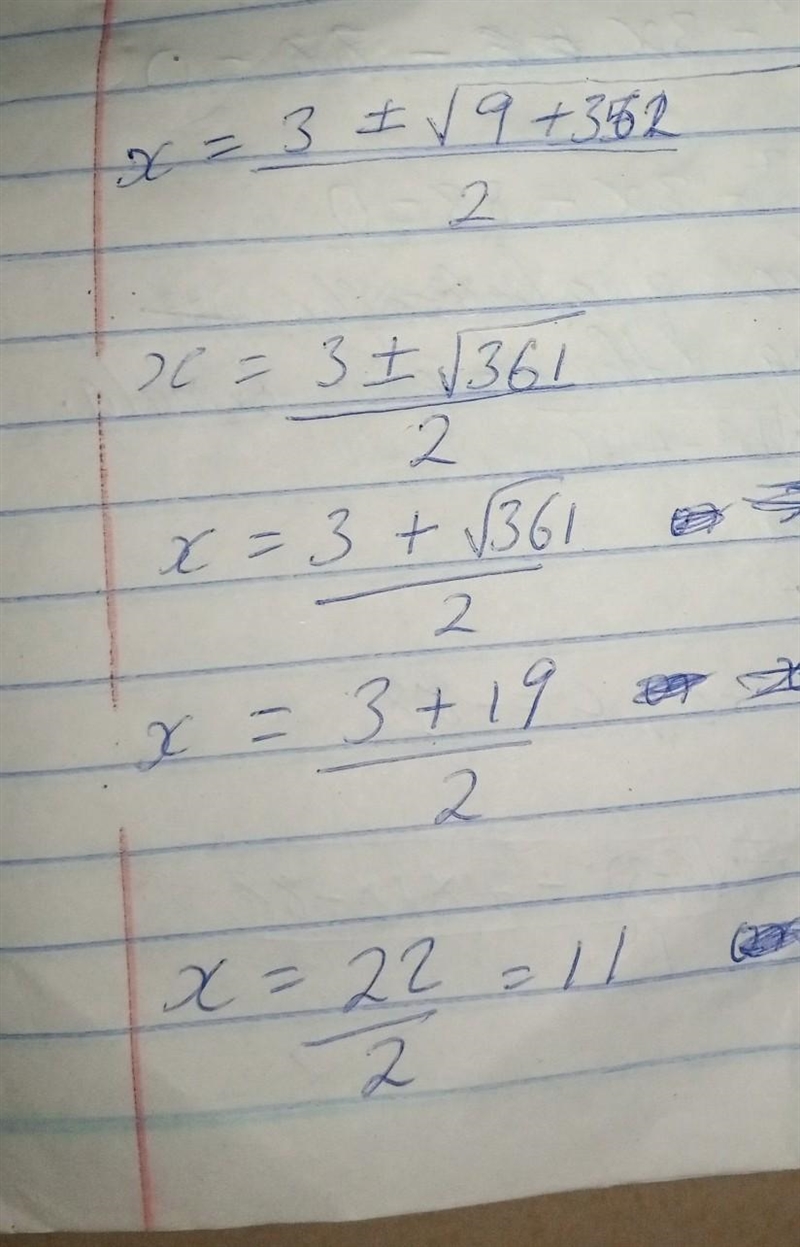 x = 3 ± √9 + 352
2
x = 3 ± √361
2
x = 3 + √361
2
x = 3 + 19
2
x = 22 = 11
2